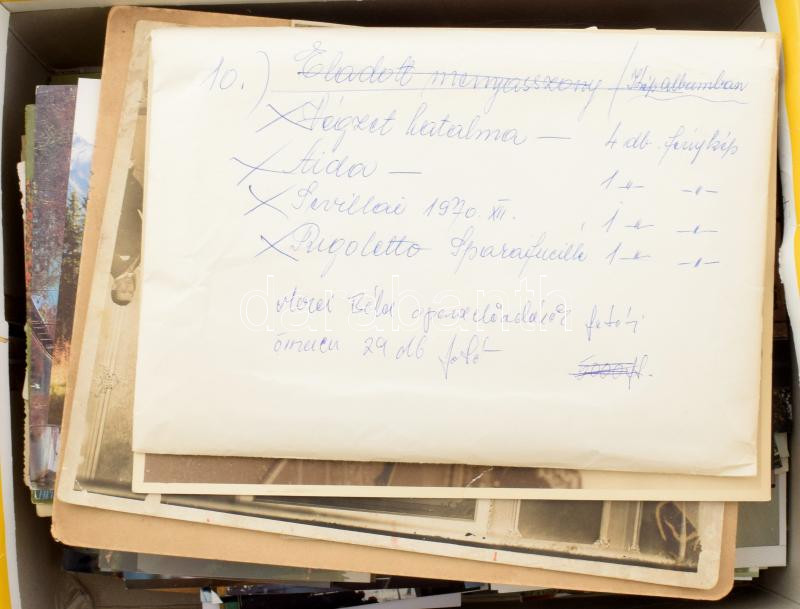 10.) Eladott menyasszony / Kép albumban
Végzet hatalma — 4 db. fénykép
Aida — 1 -"- -"-
Sevillai 1970. XII. 1 -"- -"-
Rigoletto Sparafucile 1 -"- -"-
Béla operaelőadások fotói
29 db fotó
5000 Ft.
darabanth